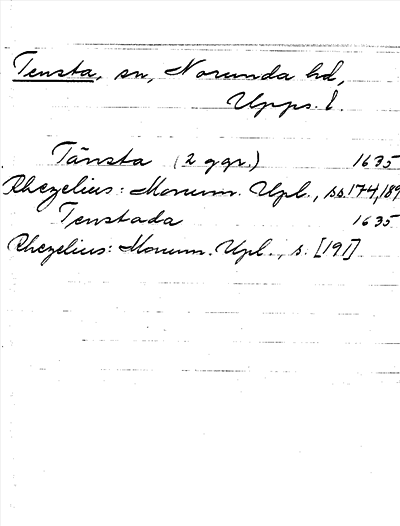 Tensta, sn, Norunda hd,
Upps. l.
Tänsta (2 ggr.) 1635
Rhezelius: Monum. Upl., ss. 174, 189
Tenstada 1635
Rhezelius: Monum. Upl., s. [191]